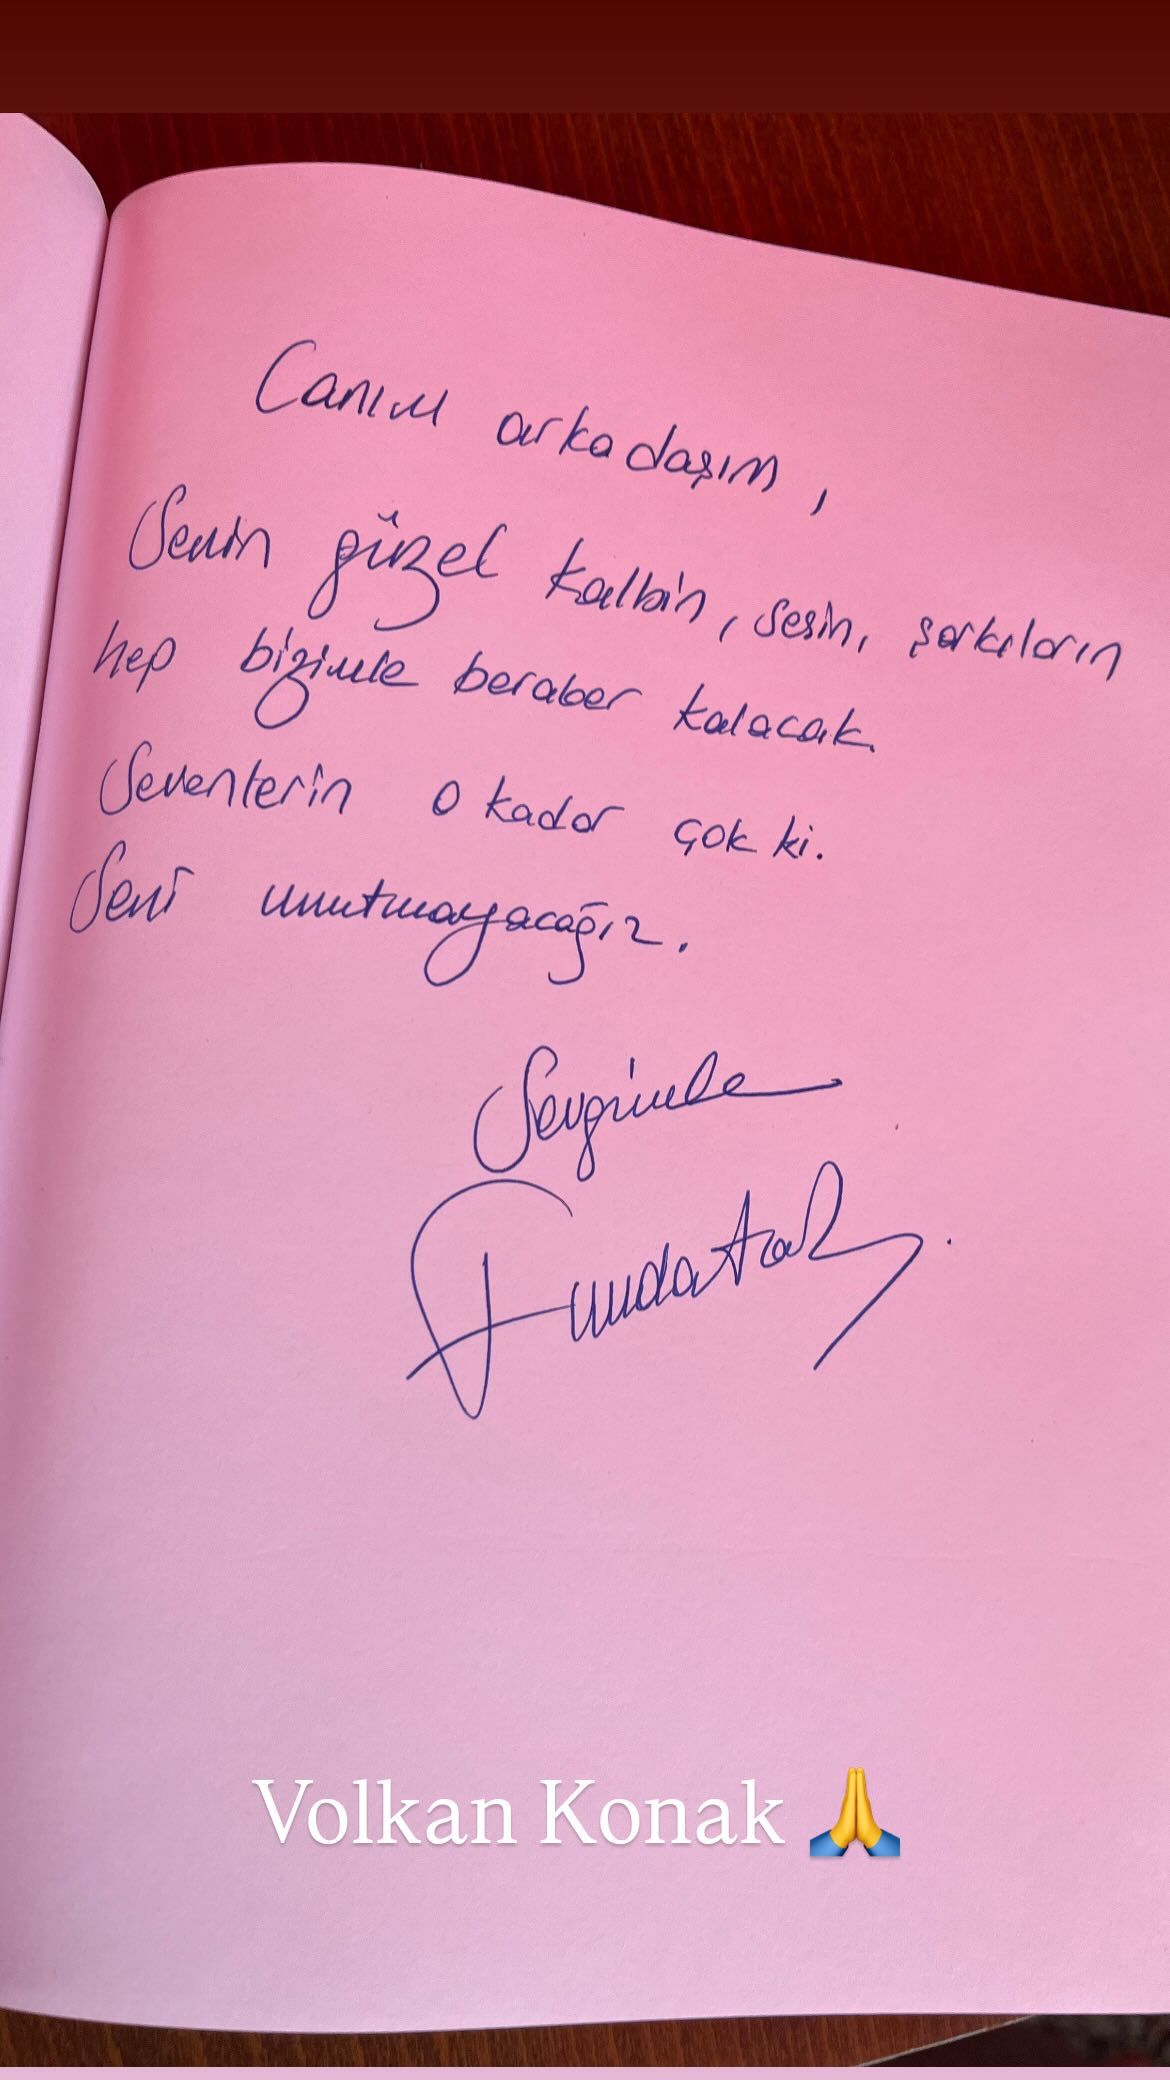 Canım arkadaşım,
Senin güzel kalbin, sesin, şarkıların
hep bizimle beraber kalacak.
Sevenlerin o kadar çok ki.
Seni unutmayacağız.
Sevgimle
Funda Arar
Volkan Konak 🙏